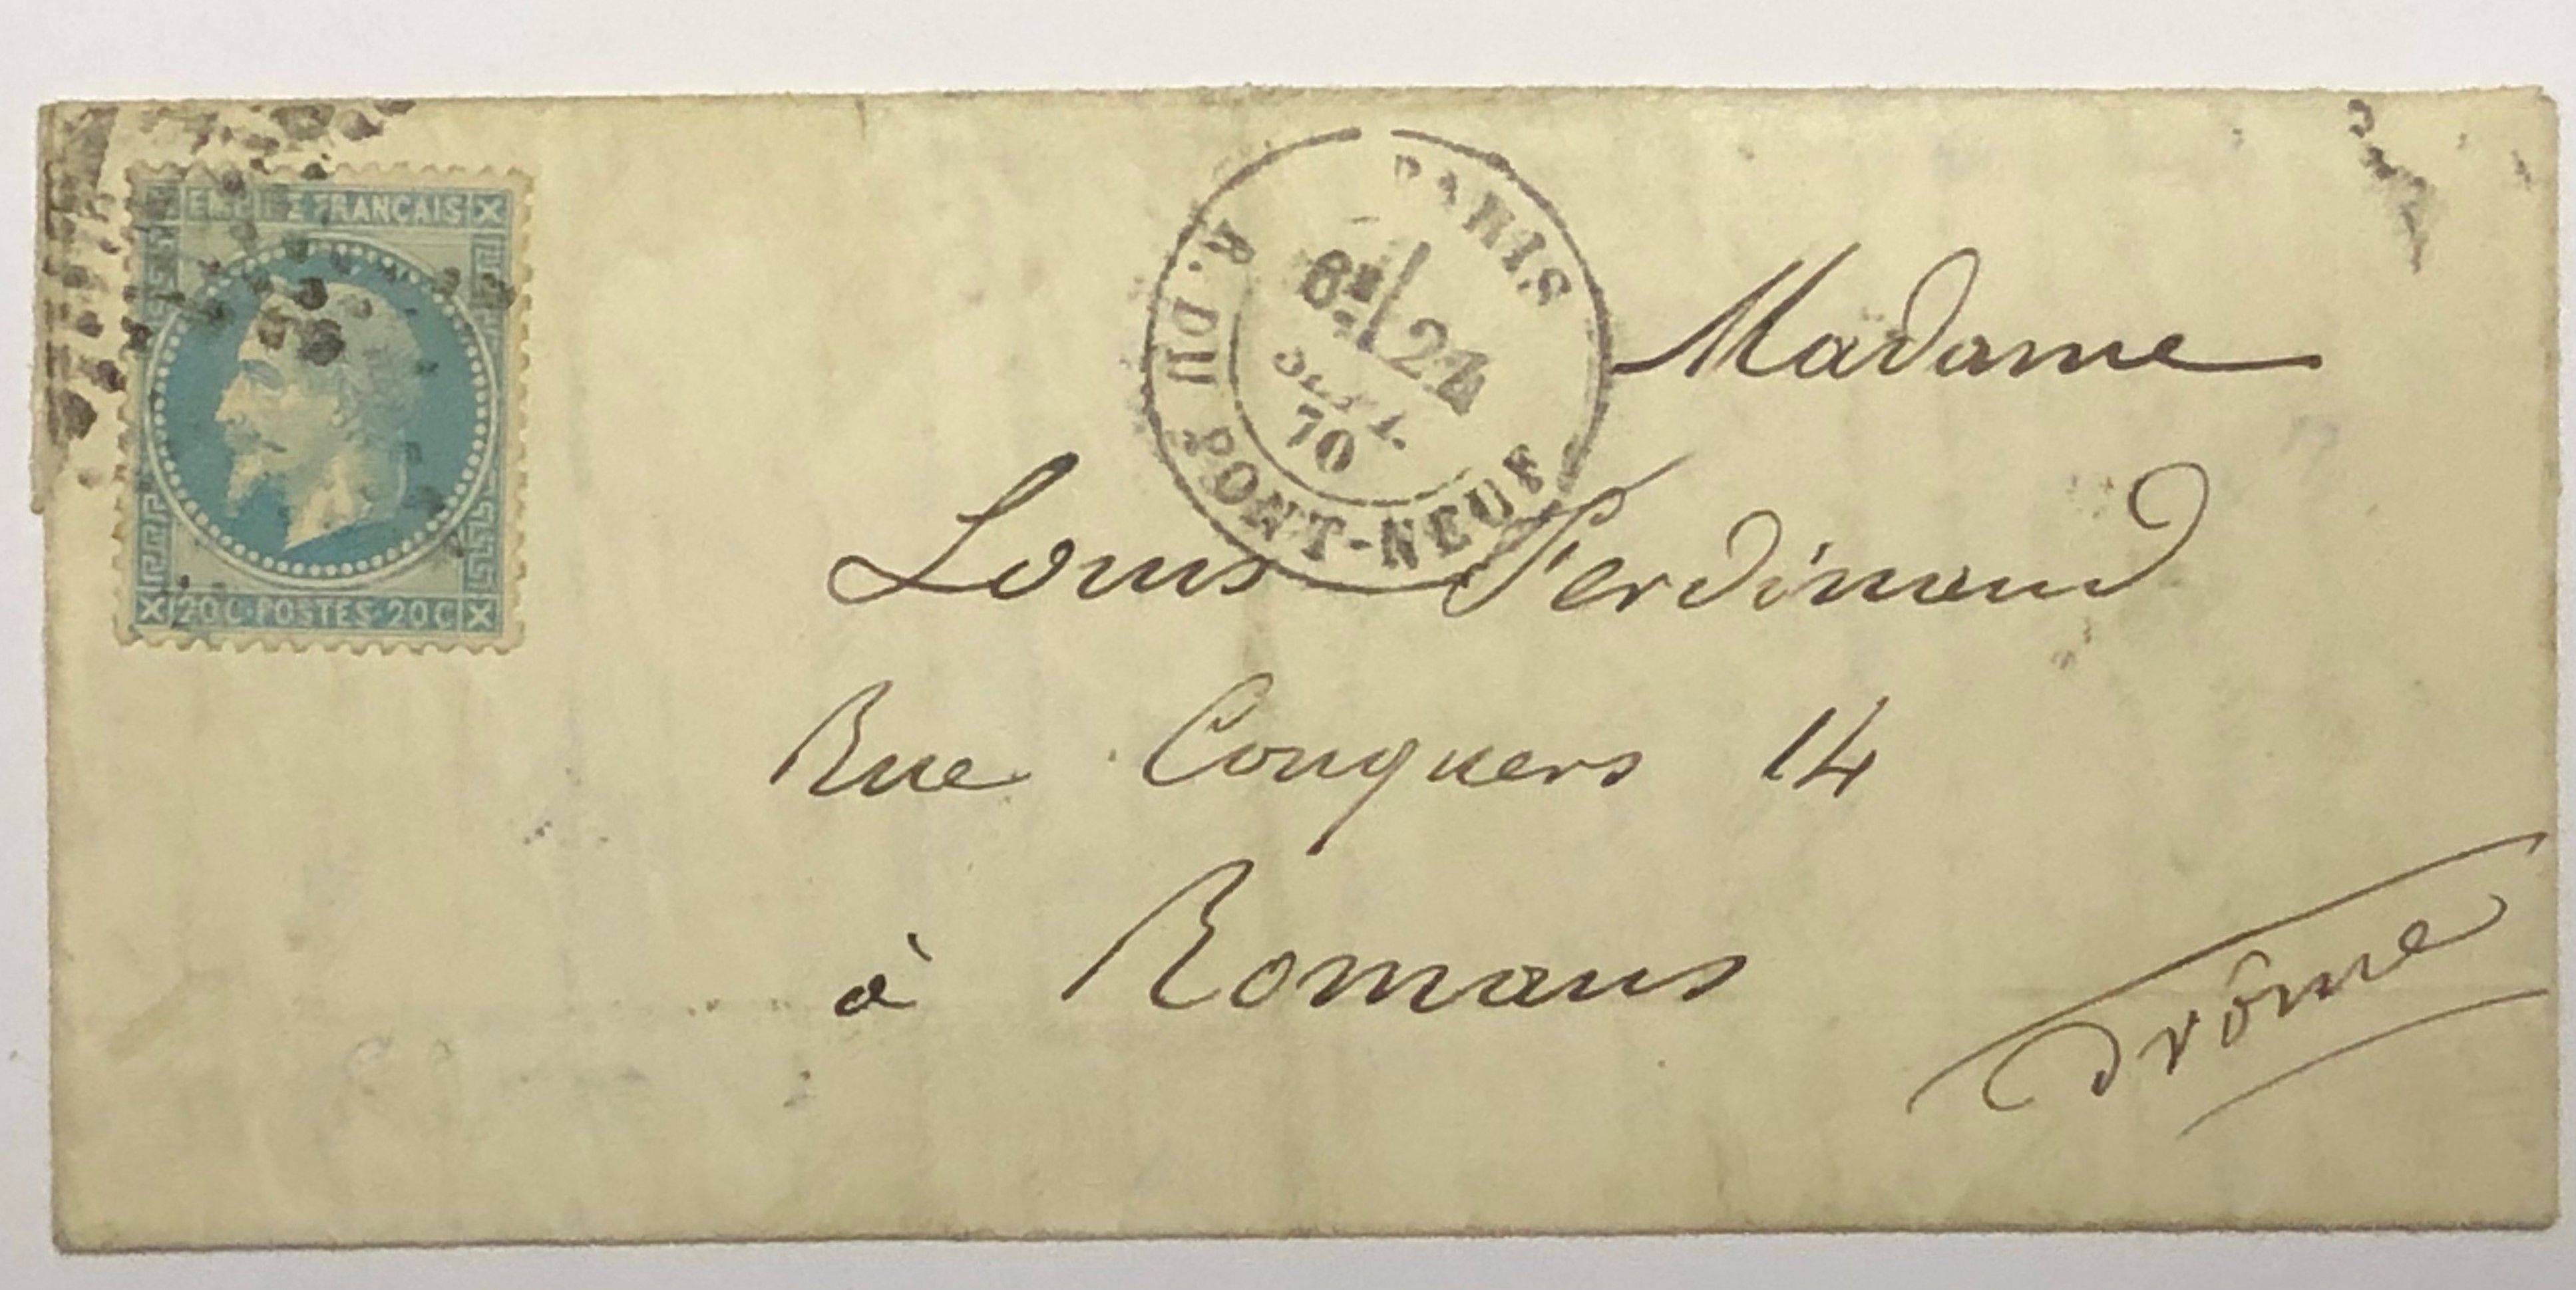 EMPIRE FRANCAIS
20C·POSTES·20C
PARIS
6E 24
SEPT.
70
R. DU PONT-NEUF
Madame
Louis Ferdinand
Rue Conquers 14
à Romans
Drôme